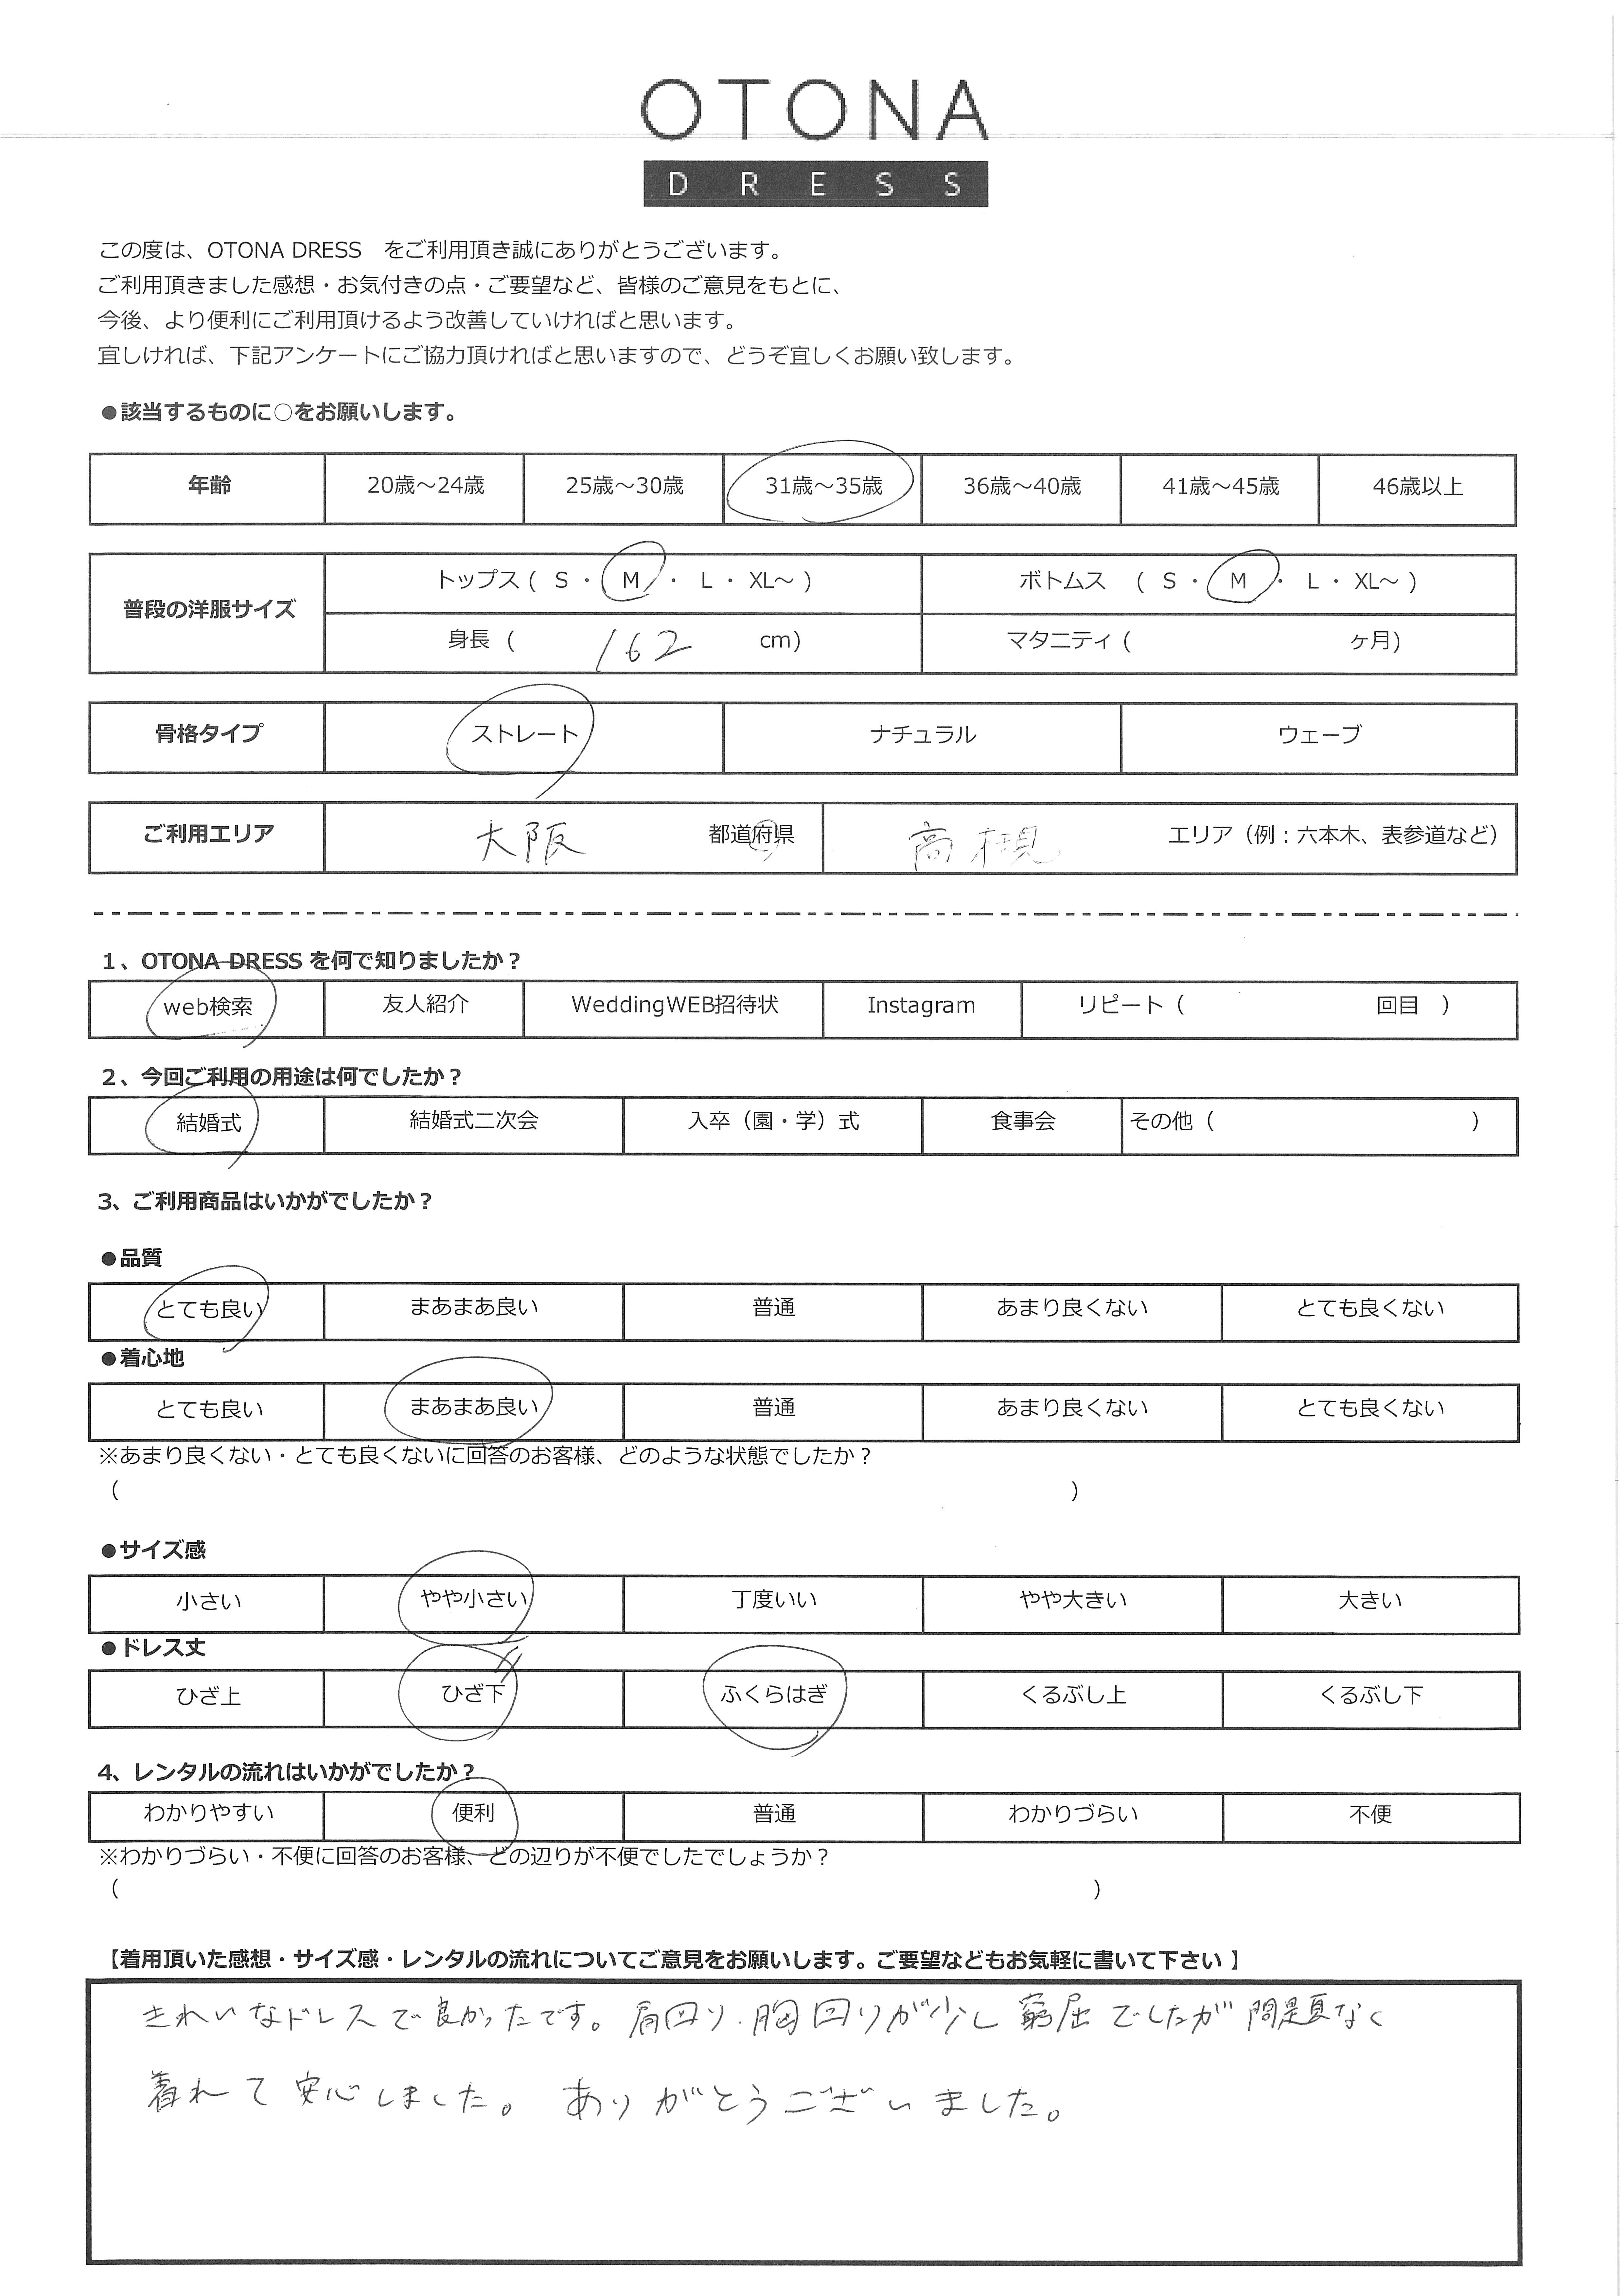 OTONA
DRESS
この度は、OTONA DRESS　をご利用頂き誠にありがとうございます。
ご利用頂きました感想・お気付きの点・ご要望など、皆様のご意見をもとに、
今後、より便利にご利用頂けるよう改善していければと思います。
宜しければ、下記アンケートにご協力頂ければと思いますので、どうぞ宜しくお願い致します。
●該当するものに○をお願いします。
年齢 20歳～24歳 25歳～30歳 31歳～35歳 36歳～40歳 41歳～45歳 46歳以上
普段の洋服サイズ トップス ( S ・ M ・ L ・ XL～ ) ボトムス ( S ・ M ・ L ・ XL～ )
身長 ( 162 cm) マタニティ ( ヶ月)
骨格タイプ ストレート ナチュラル ウェーブ
ご利用エリア 大阪 都道府県 高槻 エリア（例：六本木、表参道など）
1、OTONA DRESS を何で知りましたか？
web検索 友人紹介 WeddingWEB招待状 Instagram リピート（ 回目 ）
2、今回ご利用の用途は何でしたか？
結婚式 結婚式二次会 入卒（園・学）式 食事会 その他（ ）
3、ご利用商品はいかがでしたか？
●品質
とても良い まあまあ良い 普通 あまり良くない とても良くない
●着心地
とても良い まあまあ良い 普通 あまり良くない とても良くない
※あまり良くない・とても良くないに回答のお客様、どのような状態でしたか？
（ ）
●サイズ感
小さい やや小さい 丁度いい やや大きい 大きい
●ドレス丈
ひざ上 ひざ下 ふくらはぎ くるぶし上 くるぶし下
4、レンタルの流れはいかがでしたか？
わかりやすい 便利 普通 わかりづらい 不便
※わかりづらい・不便に回答のお客様、どの辺りが不便でしたでしょうか？
（ ）
【着用頂いた感想・サイズ感・レンタルの流れについてご意見をお願いします。ご要望などもお気軽に書いて下さい 】
きれいなドレスで良かったです。肩回り・胸回りが少し窮屈でしたが問題なく
着れて安心しました。ありがとうございました。